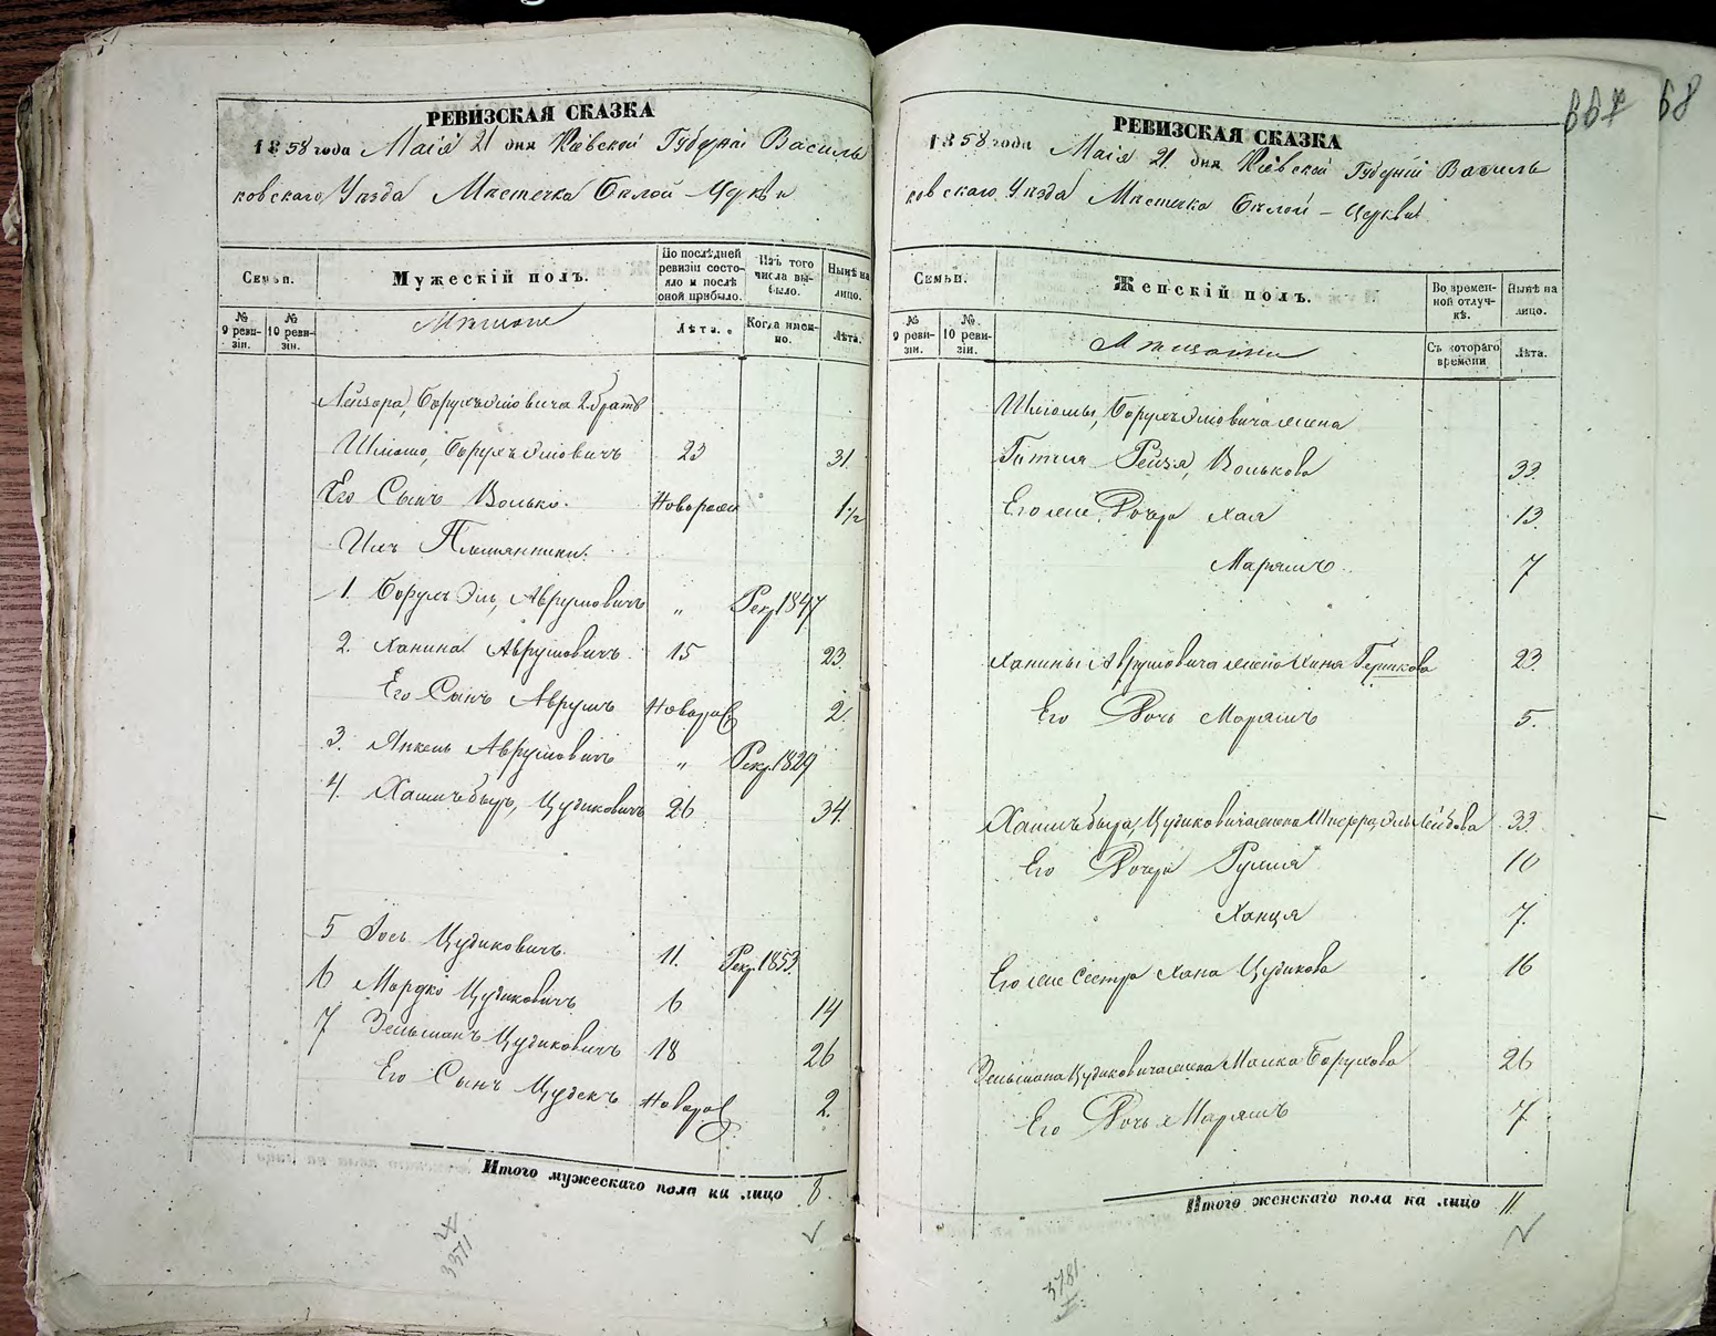 РЕВИЗСКАЯ СКАЗКА
1858 года Маія 21 дня Кіевской Губерніи Василь
ковскаго Уѣзда Мѣстечка Бѣлой-Церкви
Семьи.
Мужескій полъ.
По послѣдней ревизіи состояло и послѣ оной прибыло.
Изъ того числа выбыло.
Нынѣ на лицо.
№ 9 ревизіи.
№ 10 ревизіи.
Мѣщане
Лѣта.
Когда именно.
Лѣта.
Лейзора, Борухъ Эліовича 2. братъ
Шліомо, Борухъ Эліовичъ 23 31.
Его Сынъ Волько. Новорож 1½
Ихъ Племянники.
1. Борухъ Эль, Аврумовичъ " Рекр. 1847
2. Ханина Аврумовичъ. 15 23.
Его Сынъ Аврумъ Новорож 2.
3. Янкель Аврумовичъ " Рекр. 1829
4. Хаимъ Беръ, Цудиковичъ 26 34.
5 Іось Цудиковичъ. 11. Рекр. 1853.
6 Мордко Цудиковичъ 6 14
7 Зельманъ Цудиковичъ 18 26
Его Сынъ Цудекъ Новорож 2.
Итого мужескаго пола на лицо 8.
3371
667 68
РЕВИЗСКАЯ СКАЗКА
1858 года Маія 21 дня Кіевской Губерніи Василь
ковскаго Уѣзда Мѣстечка Бѣлой-Церкви
Семьи.
Женскій полъ.
Во временной отлучкѣ.
Нынѣ на лицо.
№ 9 ревизіи.
№ 10 ревизіи.
Мѣщанки
Съ котораго времени
Лѣта.
Шліомы, Борухъ Эліовича жена
Гитля Рейзя, Волькова 33.
Его же Дочери Хая 13.
Маріямъ 7
Ханины Аврумовича жена Хиня Гершкова 23.
Его Дочь Маріямъ 5.
Хаимъ Бера, Цудиковича жена Шперца Эль Лейбова 33.
Его Дочери Рухля 10
Ханця 7.
Его же сестра Хана Цудикова 16
Зельмана Цудиковича жена Малка Борухова 26
Его Дочь Маріямъ 7.
Итого женскаго пола на лицо 11.
3781